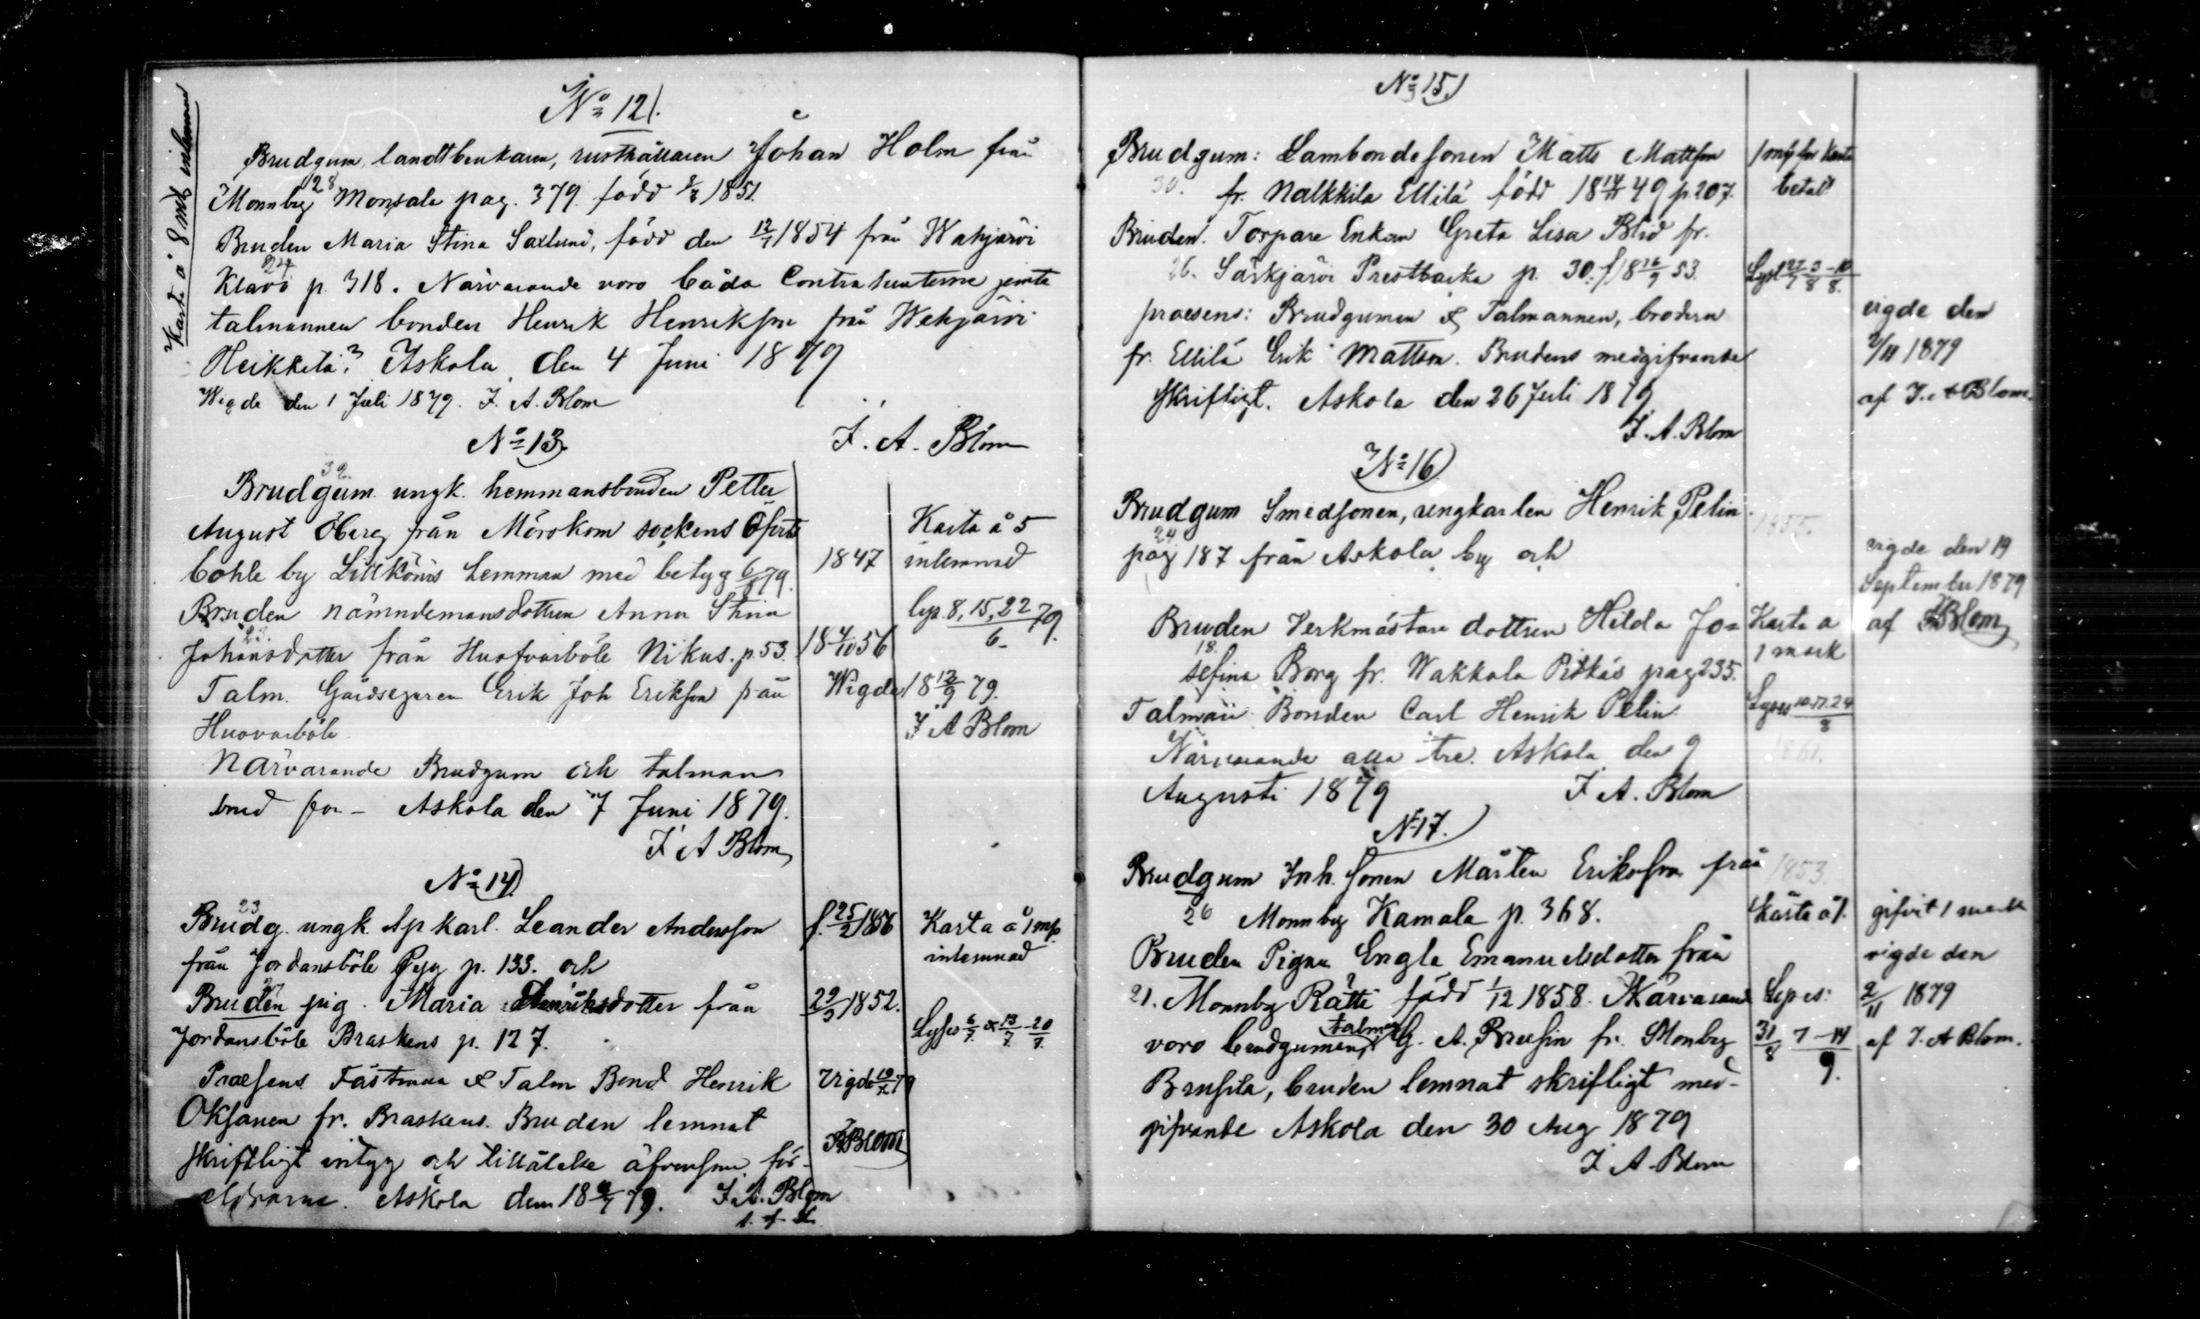 Karta à 8 mk inlemnad
No 12).
Brudgum, landtbrukaren, rusthållaren Johan Holm från
28
Monnby Monsala pag. 379. född 1851.
Bruden Maria Stina Saxlund, född den 12/1 1854 från Wahjärvi
24
Klavi p. 318. Närvarande voro båda Contrahenterne jemte
talmannen bonden Henrik Henriksson från Wehjärvi
Heikkilä. Askola den 4 Juni 1879
Wigde den 1 Juli 1879. F. A. Blom
F. A. Blom
No 13).
32.
Brudgum. ungk. hemmansbonden Petter
August Öberg från Mörskom sockens Öfvits
bohle by Lillköönis hemman med betyg 6/6 79.
1847
Karta à 5
inlemnad
Bruden nämndemansdottren Anna Stina
23.
Johansdotter från Huofvarböle Nikus. p. 53.
18 4/10 56
lys. 8, 15, 22/6 79.
Talm. Gårdsegaren Erik Joh Erikson från
Huovarböle
Wigde 18 12/9 79.
F A Blom
Närvarande Brudgum och talman
Askola den 7 Juni 1879.
F A Blom
No 14).
23
Brudg. ungk. Leander Andersson
från Jordansböle p. 133. och
f. 25/2 1856
Karta à 1 mk
inlemnad
27
Bruden pig. Maria Henriksdotter från
Jordansböle Braskens p. 127.
29/3 1852.
Lyses 6/7 & 13/7 20/7
Praesens Fästman & Talm Bond Henrik
Oksanen fr. Braskens. Bruden lemnat
skriftligt intyg och tillåtelse äfvensom för-
äldrarne. Askola den 18 /7 79. F. A. Blom
Vigde 79
FABlom
No 15)
Brudgum: Lambondesonen Matts Mattson
30. fr. Nalkkila Ellilä född 18 49 p. 207.
1 mk för Karta
betalt
Bruden. Torpare Enkan Greta Lisa Blid fr.
26. Särkjärvi Prestbacka p. 30. f 18 26/9 53.
Lyst 27/7 3-10/8
praesens: Brudgumen & Talmannen, brodren
fr. Ellilä Erik Mattson. Brudens medgifvande
skriftligt. Askola den 26 Juli 1879
F. A. Blom
vigde den
2/11 1879
af F. A Blom.
No 16)
Brudgum Smedsonen, ungkarlen Henrik Pelin.
24
pag 187 från Askola by och
1855.
vigde den 19
September 1879
af FABlom
Bruden Verkmästare dottren Hilda Jo=
18.
sefina Borg fr. Wakkola Piskas pag 235.
Karta à
1 mark
Talman Bonden Carl Henrik Pelin.
Lyses 10. 17. 24/8
Närvarande alla tre. Askola den 9
Augusti 1879 F. A. Blom
1861.
No 17.)
Brudgum Inh. sonen Mårten Eriksson från
26 Monnby Kamala p. 368.
1853.
Karta à 1.
gifvit 1 mark
Bruden Pigan Engla Emanuelsdotter från
21. Monnby Rätti född 1/12 1858. Närvarande
voro brudgumen, talman G. A. Brusin fr. Monby
Brusila, bruden lemnat skrifligt med-
gifvande Askola den 30 Aug 1879
F A Blom
Lyses:
31/8 7-14/9.
vigde den
2/11 1879
af F. A Blom.